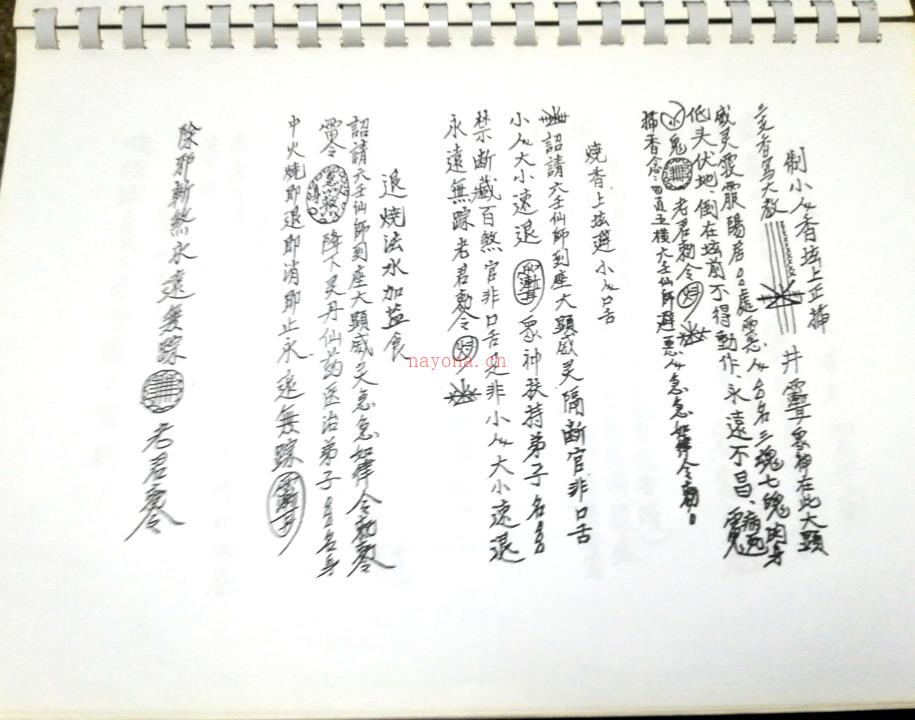 制小人香坛上正插
三支香写大教 井 众神在此大显
威灵 阳居 处 人 名三魂七魄肉身
低头伏地倒在坛前不得动作永远不昌
鬼 老君勅令
插香念 玉横大壬仙師避悪人急急如律令勅
烧香上坛避小人口舌
詔請六壬仙師到座大顕威灵隔断官非口舌
小人大小速退 众神扶持弟子名
禁断藏百煞官非口舌是非小人大小速退
永遠無踪老君勅令
退烧法水加盐食
詔請六壬仙師到座大顕威灵急急如律令勅令
降下灵丹仙药医治弟子 名身
中火烧即退即消即止永遠無踪
除邪斬煞永遠無踪 老君勅令
nayona.cn